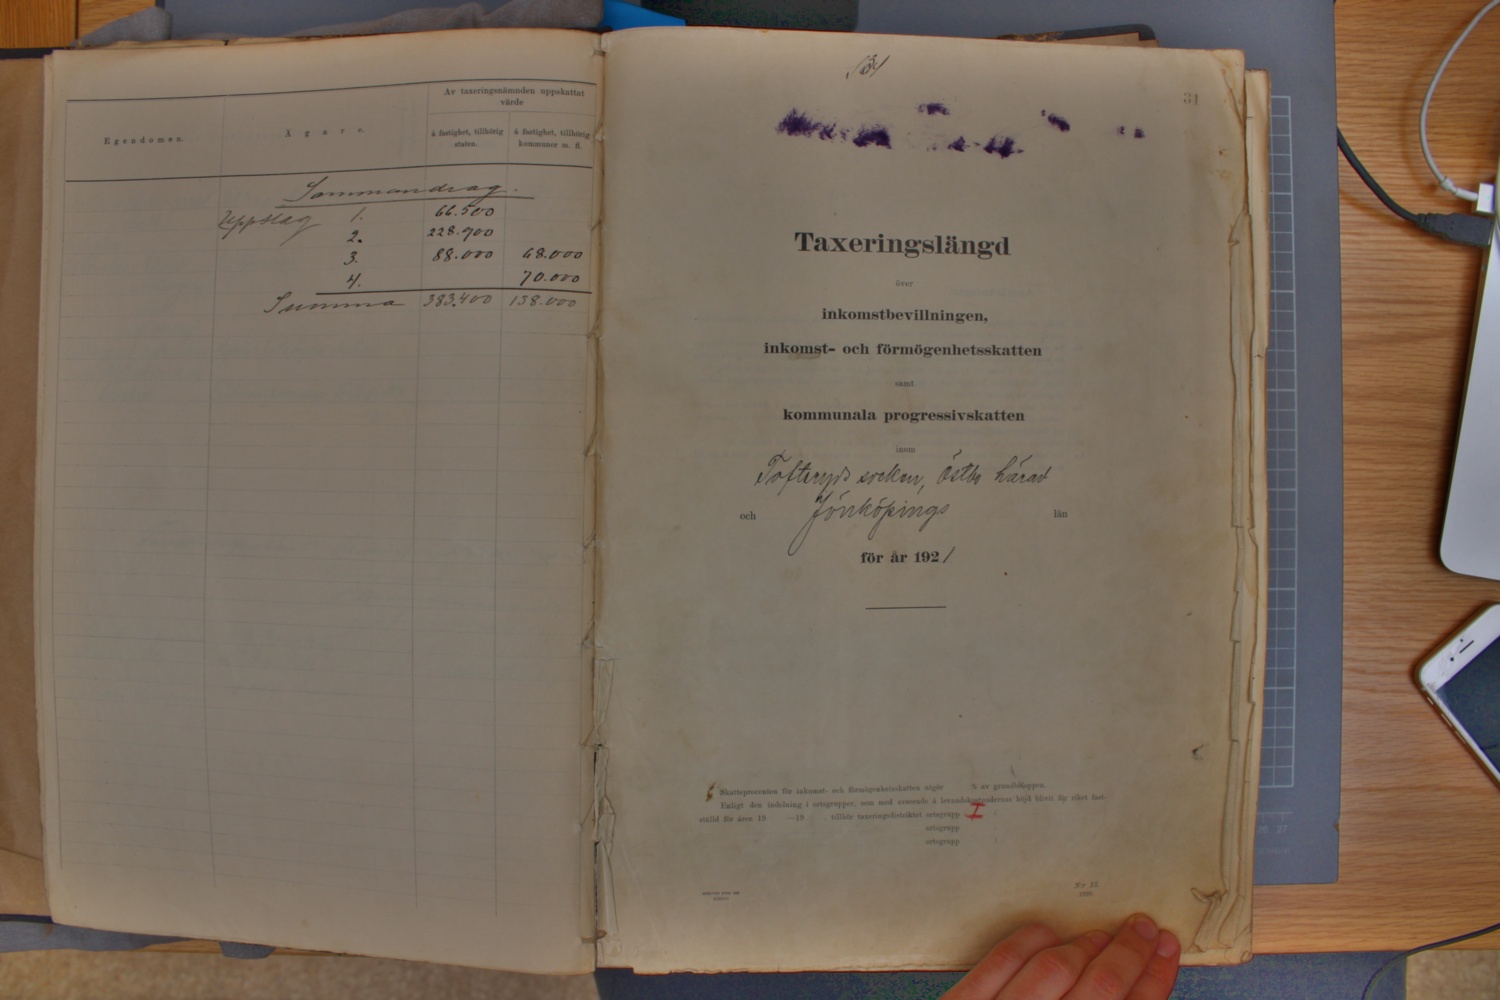 Av taxeringsnämnden uppskattat
värde
Egendomen.
Ägare.
å fastighet, tillhörig
staten.
å fastighet, tillhörig
kommuner m. fl.
Sammandrag.
Uppslag 1. 66.500
2. 228.900
3. 88.000 68.000
4. 70.000
Summa 383.400 138.000
131
31
Taxeringslängd
över
inkomstbevillningen,
inkomst- och förmögenhetsskatten
samt
kommunala progressivskatten
inom
Tofteryds socken, Östbo härad
och Jönköpings län
för år 1921
Skatteprocenten för inkomst- och förmögenhetsskatten utgör % av grundbeloppen.
Enligt den indelning i ortsgrupper, som med avseende å levnadskostnadernas höjd blivit för riket fast-
ställd för åren 19 —19 tillhör taxeringsdistriktet ortsgrupp I
ortsgrupp
ortsgrupp
Nr IX
1920